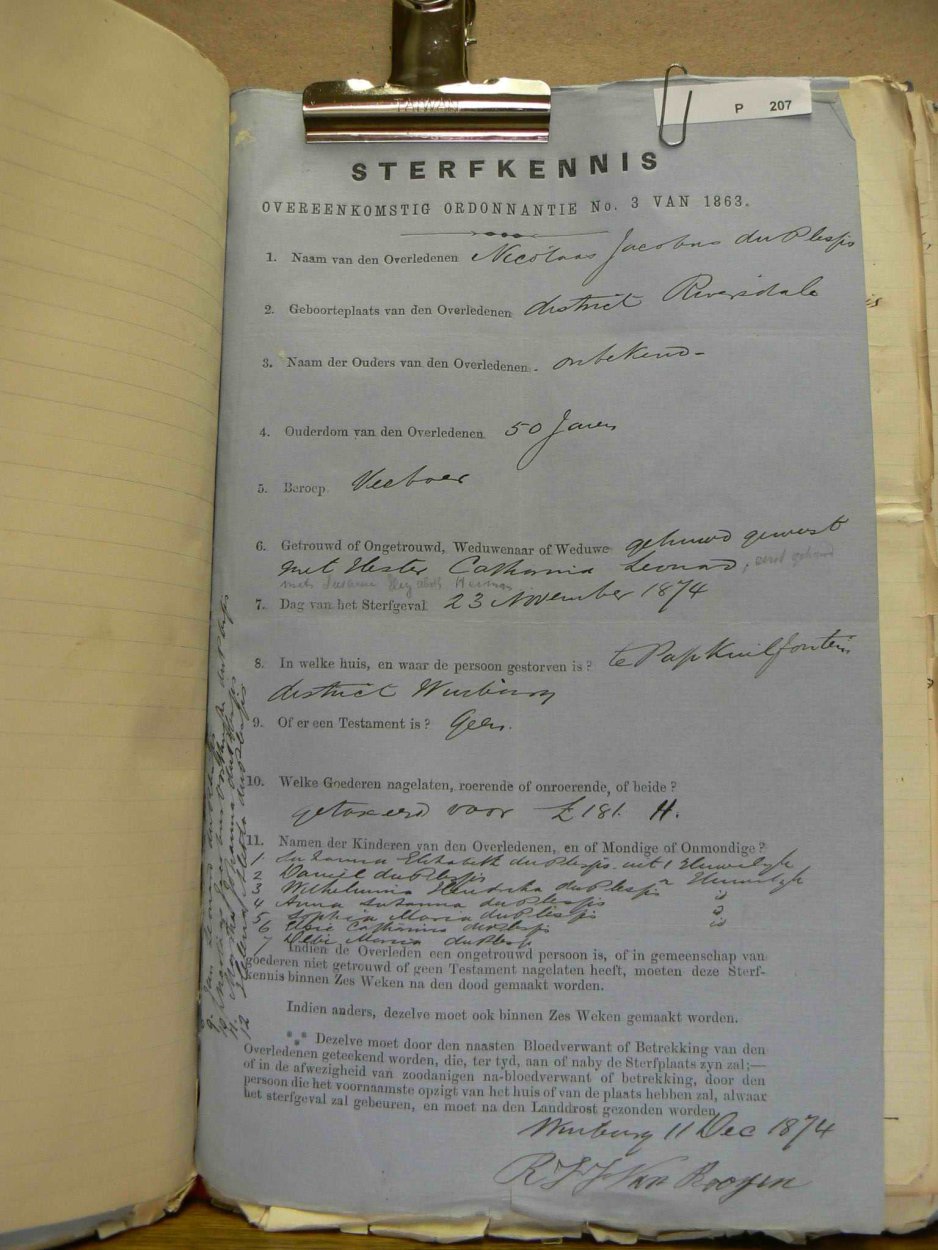 TAIWAN
P 207
STERFKENNIS
OVEREENKOMSTIG ORDONNANTIE No. 3 VAN 1863.
1. Naam van den Overledenen Nicolaas Jacobus du Plessis
2. Geboorteplaats van den Overledenen district Riversdale
3. Naam der Ouders van den Overledenen. onbekend -
4. Ouderdom van den Overledenen 50 Jaren
5. Beroep Veeboer
6. Getrouwd of Ongetrouwd, Weduwenaar of Weduwe gehuwd geweest
met Hester Catharina Leonard, eerst gehuwd
met Susanna Elizabeth
7. Dag van het Sterfgeval 23 November 1874
8. In welke huis, en waar de persoon gestorven is? te Papkuilfontein
district Winburg
9. Of er een Testament is? Geen.
10. Welke Goederen nagelaten, roerende of onroerende, of beide?
getaxeerd voor £181.
11. Namen der Kinderen van den Overledenen, en of Mondige of Onmondige?
1 Susanna Elizabeth du Plessis uit 1 Huwelijk
2 Daniel du Plessis " Huwelijk
3 Wilhelmina Hendrika du Plessis
4 Anna Susanna du Plessis
5 Sophia Maria du Plessis
6 Elsie Catharina du Plessis
7 Maria du Plessis
9. Jan
10
11
12 Helena Aletta du Plessis
Indien de Overleden een ongetrouwd persoon is, of in gemeenschap van
goederen niet getrouwd of geen Testament nagelaten heeft, moeten deze Sterf-
kennis binnen Zes Weken na den dood gemaakt worden.
Indien anders, dezelve moet ook binnen Zes Weken gemaakt worden.
Dezelve moet door den naasten Bloedverwant of Betrekking van den
Overledenen geteekend worden, die, ter tyd, aan of naby de Sterfplaats zyn zal;—
of in de afwezigheid van zoodanigen na-bloedverwant of betrekking, door den
persoon die het voornaamste opzigt van het huis of van de plaats hebben zal, alwaar
het sterfgeval zal gebeuren, en moet na den Landdrost gezonden worden.
Winburg 11 Dec 1874
Van Rooyen